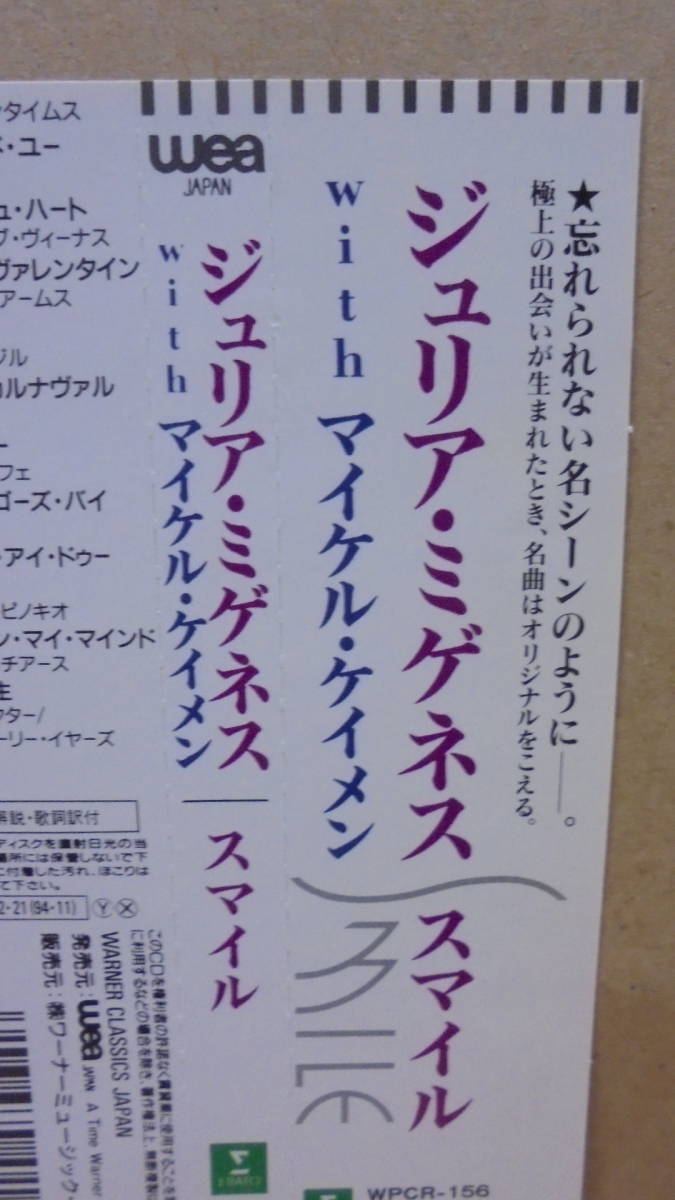 ★忘れられない名シーンのように──。
極上の出会いが生まれたとき、名曲はオリジナルをこえる。
ジュリア・ミゲネス
with マイケル・ケイメン
スマイル
SMILE
WPCR-156
wea
JAPAN
ジュリア・ミゲネス
with マイケル・ケイメン
スマイル
ERATO
タイムス
ユー
ュ・ハート
ブ・ヴィーナス
ヴァレンタイン
アームス
ジル
カルナヴァル
ー
フェ
ゴーズ・バイ
・アイ・ドゥー
ピノキオ
ン・マイ・マインド
チアース
生
クター/
ーリー・イヤーズ
解説・歌詞訳付
ディスクを直射日光の当
場所には保管しないで下
に付着した汚れ、ほこりは
て下さい。
2・21(94・11) Ⓨ Ⓧ
このCDを権利者の許諾なく賃貸業に使用することを
に利用するなどの場合を除き、著作権法上、無断複製
WARNER CLASSICS JAPAN
発売元：wea JAPAN A Time Warner
販売元：㈱ワーナーミュージック・